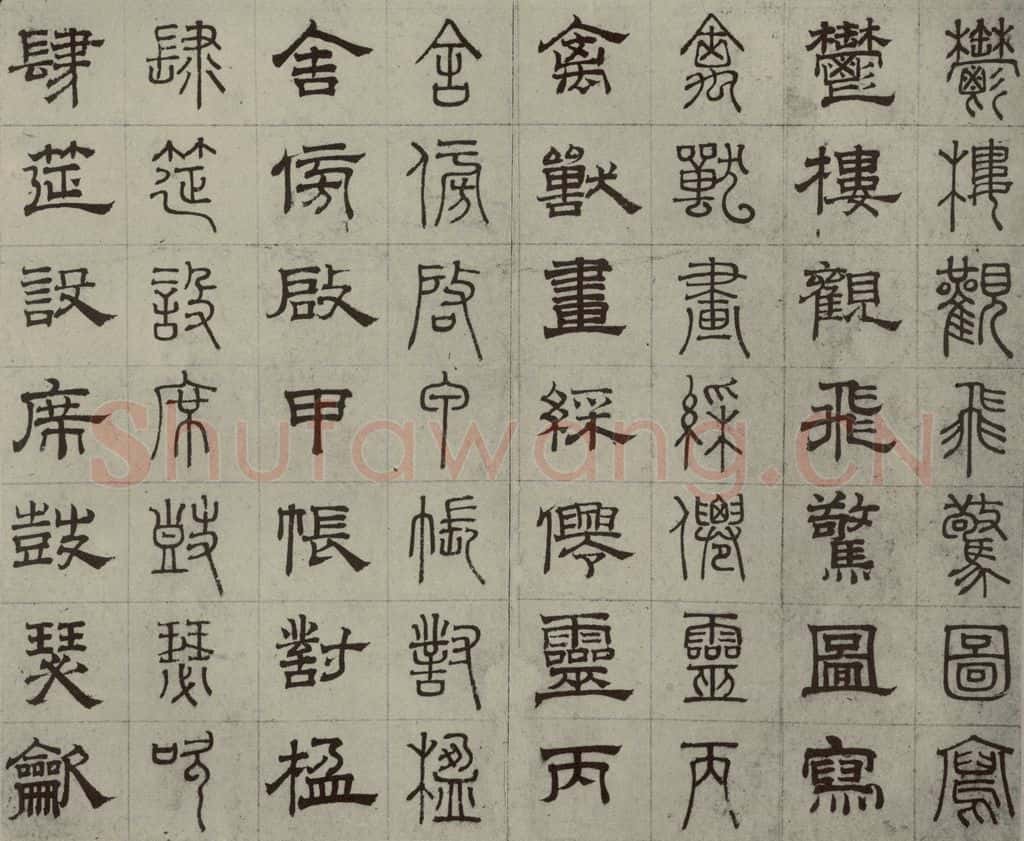 鬱樓觀飛驚圖寫
鬱樓觀飛驚圖寫
禽獸畫綵僊靈丙
禽獸畫綵僊靈丙
舍傍啟甲帳對楹
舍傍啟甲帳對楹
肆筵設席鼓瑟吹
肆筵設席鼓瑟龡
Shufawang.CN